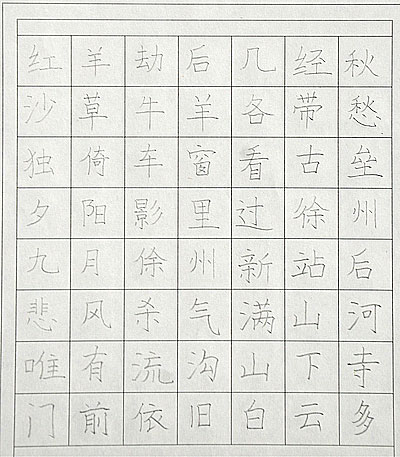 红羊劫后几经秋
沙草牛羊各带愁
独倚车窗看古垒
夕阳影里过徐州
九月徐州新站后
悲风杀气满山河
唯有流沟山下寺
门前依旧白云多